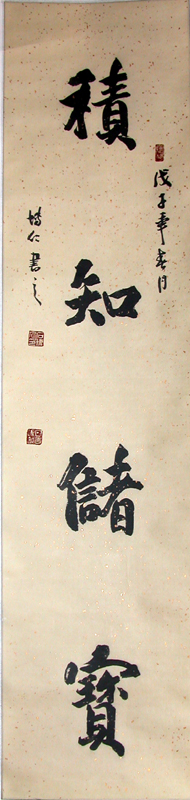 積知儲寶
戊子年春月
博仁書之